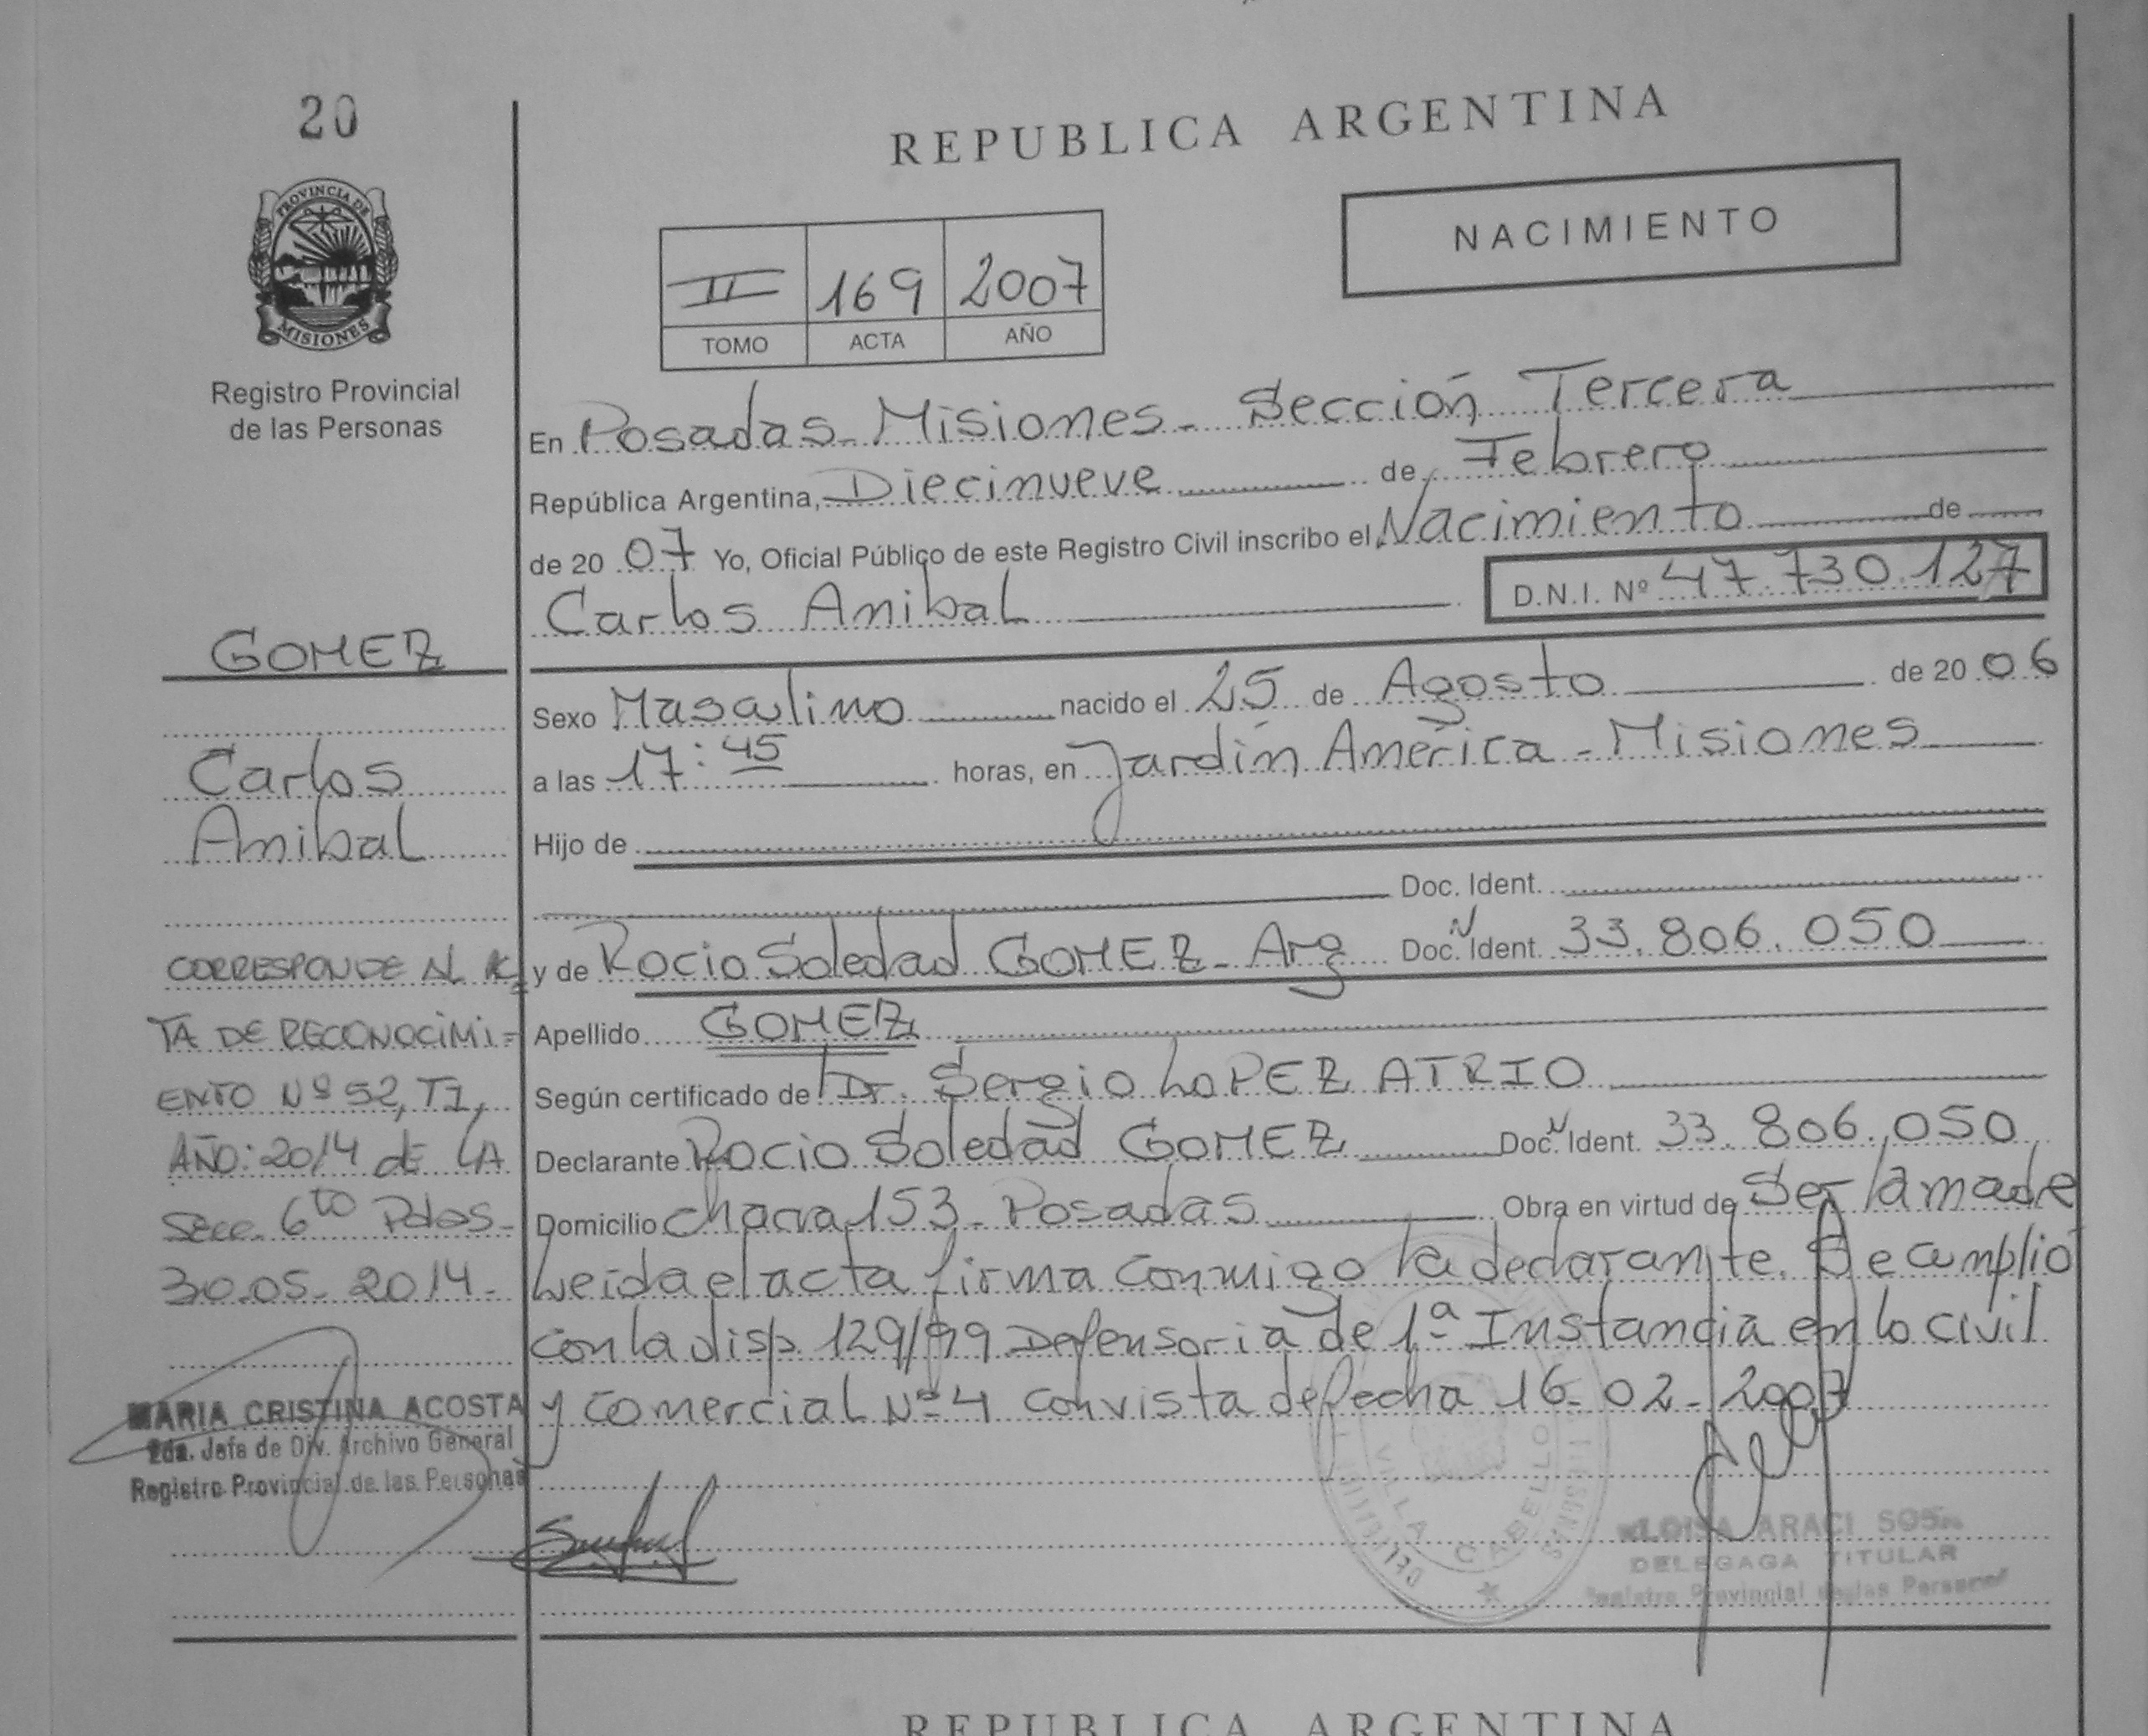 20
PROVINCIA DE
MISIONES
Registro Provincial
de las Personas
GOMEZ
Carlos
Anibal
CORRESPONDE AL AC
TA DE RECONOCIMI=
ENTO Nº 52, T1,
AÑO: 2014 de LA
Secc. 6to Pdas.
30.05.2014.
MARIA CRISTINA ACOSTA
2da. Jefa de Div. Archivo General
Registro Provincial de las Personas
REPUBLICA ARGENTINA
NACIMIENTO
II 169 2007
TOMO ACTA AÑO
En Posadas Misiones - Sección Tercera
República Argentina, Diecinueve de Febrero
de 20 07 Yo, Oficial Público de este Registro Civil inscribo el Nacimiento de
Carlos Anibal D.N.I. Nº 47.730.127
Sexo Masculino nacido el 25 de Agosto de 20 06
a las 17:45 horas, en Jardín América - Misiones
Hijo de
Doc. Ident.
y de Rocio Soledad GOMEZ - Arg Doc. N Ident. 33.806.050
Apellido GOMEZ
Según certificado de Dr. Sergio LOPEZ ATRIO
Declarante Rocio Soledad GOMEZ Doc. N Ident. 33.806.050
Domicilio chacra 153 - Posadas Obra en virtud de Ser la madre
Leída el acta firma conmigo la declarante. Se cumplió
con la disp. 129/99 Defensoria de 1ª Instancia en lo civil
y Comercial Nº 4 con vista de fecha 16-02-2007
VILLA CABELLO
ARACI SOSA
DELEGAGA TITULAR
Registro Provincial de las Personas
REPUBLICA ARGENTINA